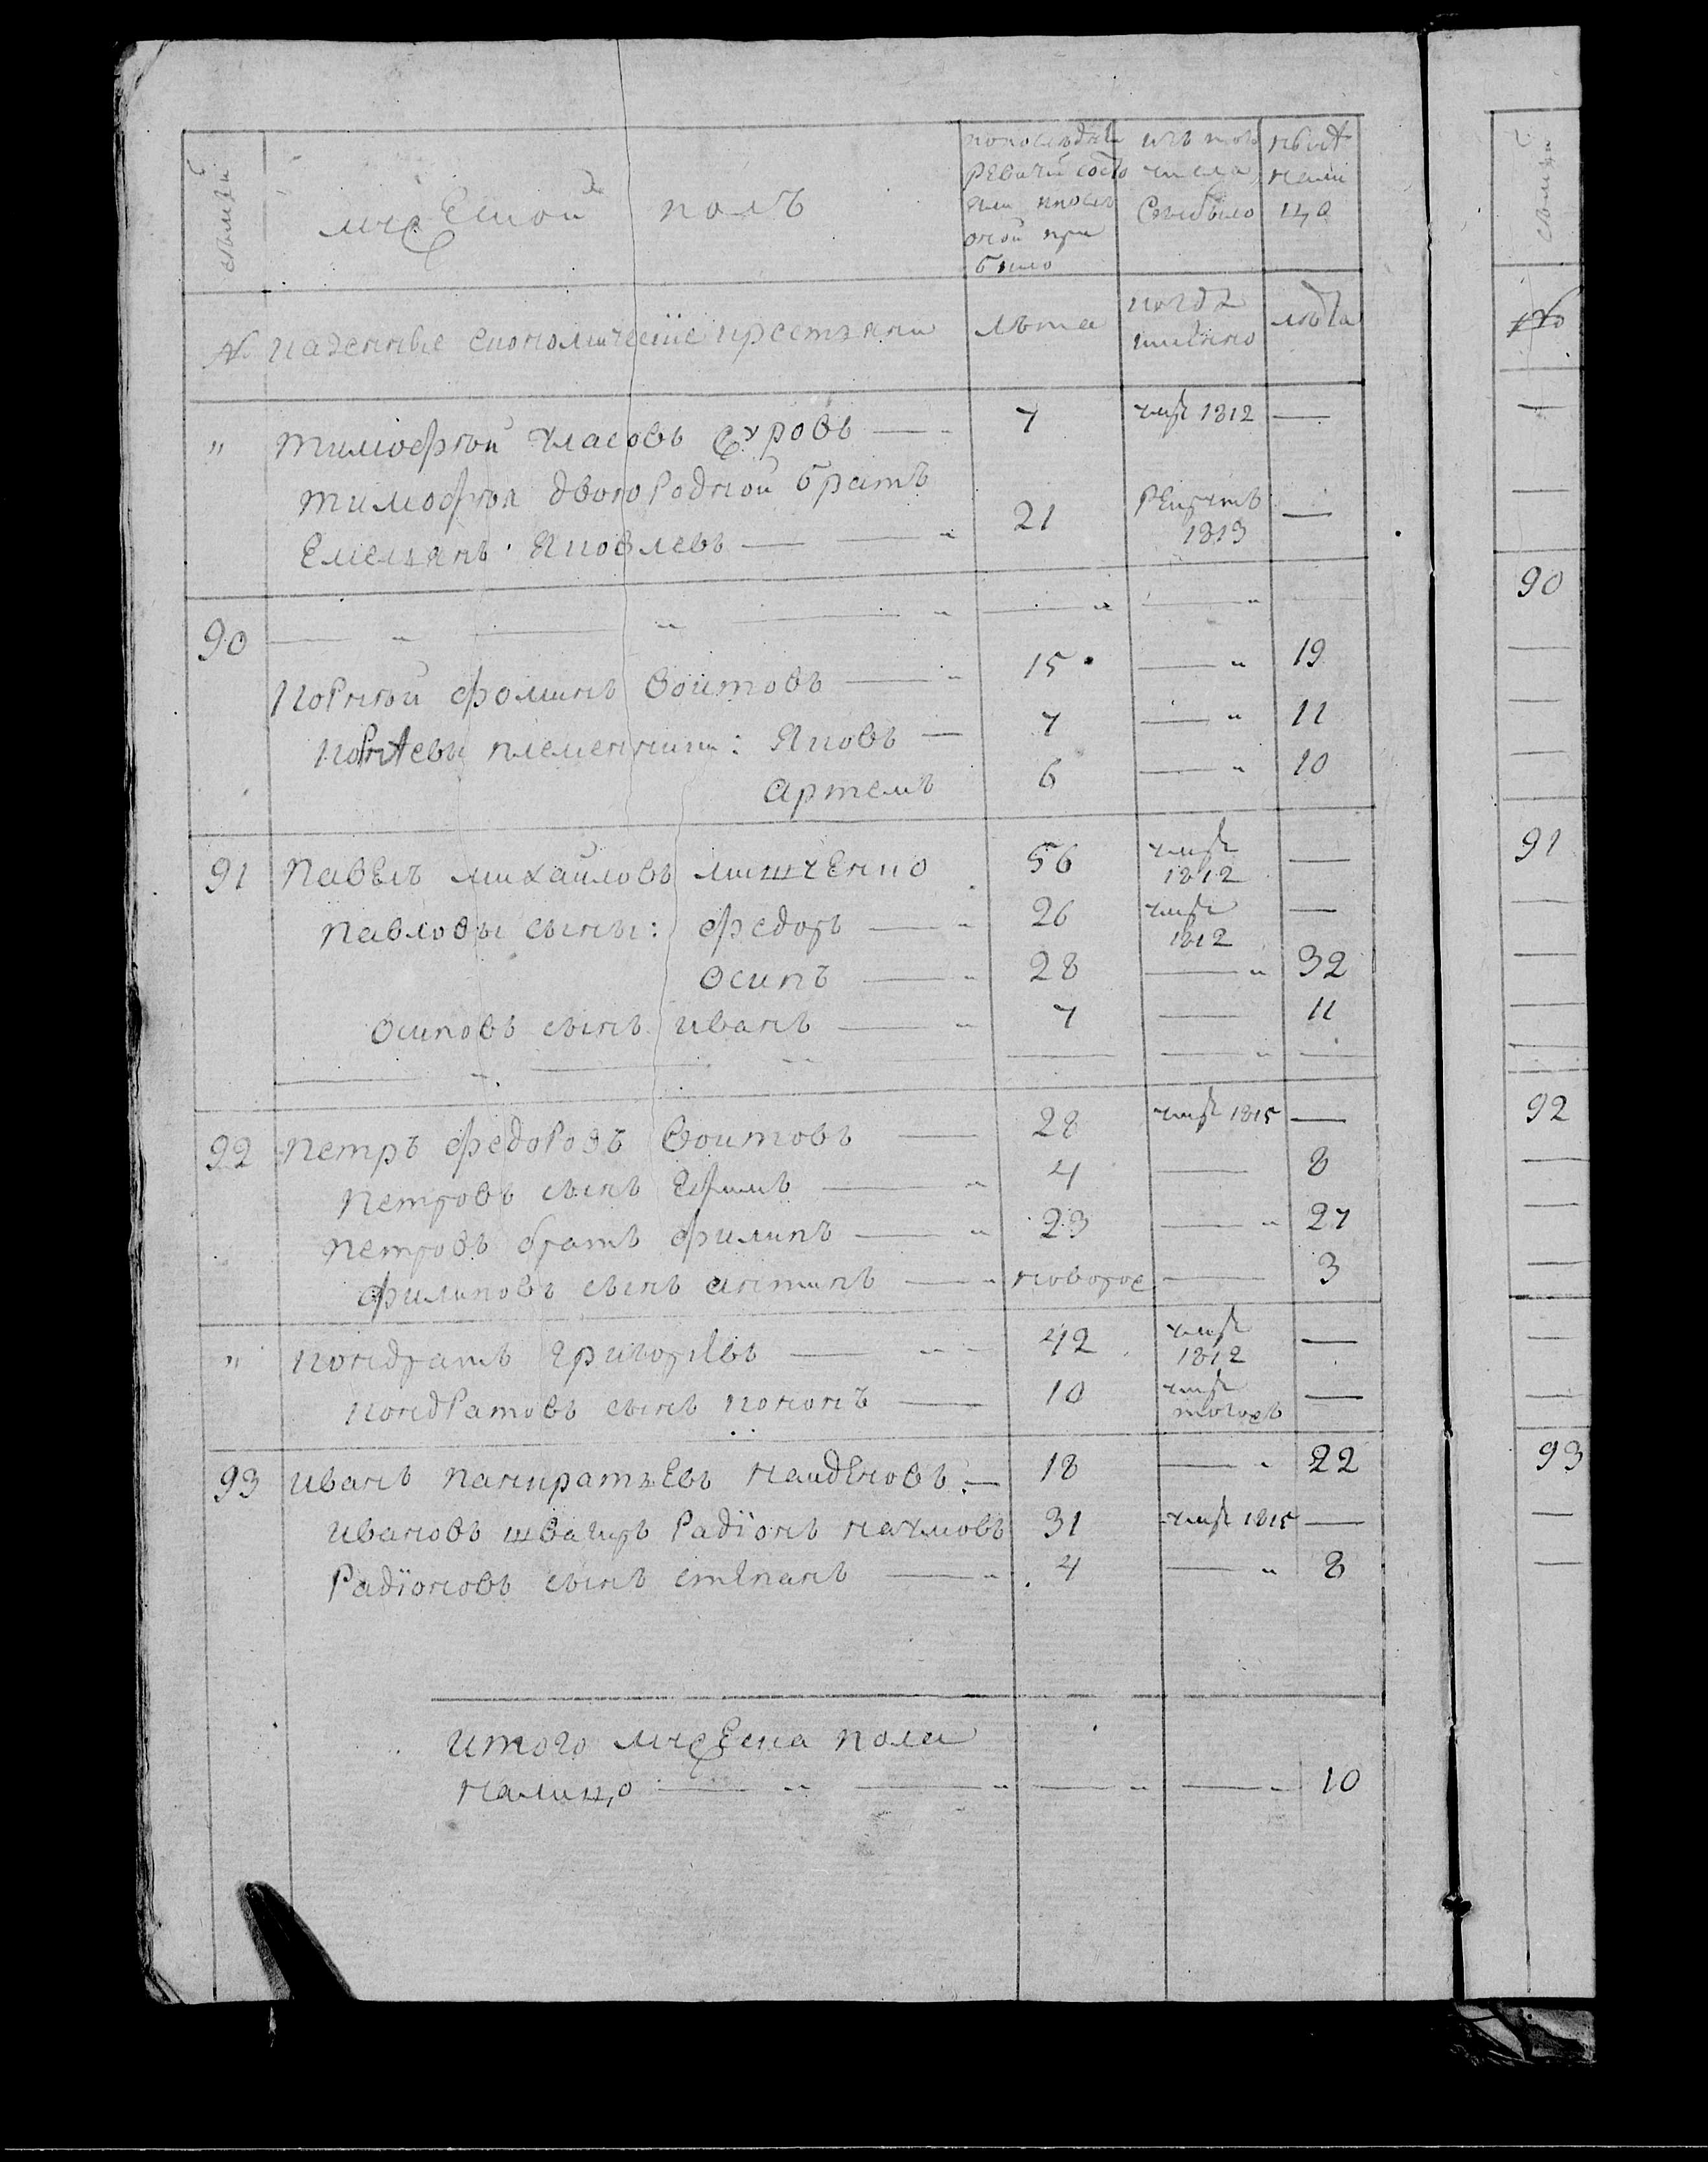 семьи
мужеской полъ
по последней ревизіи состояли и после оной прибыло
изъ того числа выбыло
ныне налицо
№ казенные економическіе крестьяни
лѣта
когда имянно
лѣта
" тимофѣй власовъ суровъ — 7 умре 1812 —
тимофѣя двоюродной братъ
Емельянъ Яковлевъ — 21 рекрутъ 1813 —
90
корнѣй фоминъ воитовъ — 15 — 19
корнѣевы племенники: Яковъ — 7 — 11
артемъ 6 — 10
91 павелъ михаиловъ мишченко 56 умре 1812 —
павловы сыны: федоръ — 26 умре 1812 —
осипъ — 28 — 32
осиповъ сынъ иванъ — 7 — 11
92 петръ федоровъ воитовъ — 28 умре 1815 —
петровъ сынъ Ефимъ — 4 — 8
петровъ братъ филипъ — 23 — 27
филиповъ сынъ антипъ — новорож — 3
" кондратъ григорѣвъ — 42 умре 1812 —
кондратовъ сынъ кононъ — 10 умре тогожъ —
93 иванъ панкратьевъ найденовъ — 18 — 22
ивановъ швагиръ радїонъ наумовъ 31 умре 1815 —
радїоновъ сынъ степанъ — 4 — 8
итого мужеска пола
налицо — 10
семьи
№
90
91
92
93